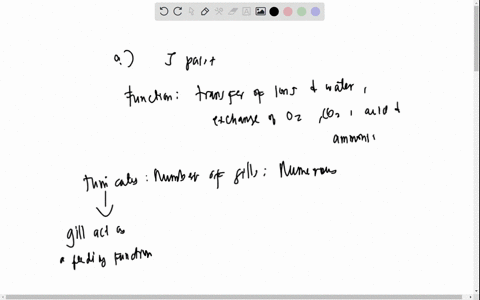 a.) 5 pair
function: transfer of Ions & water,
exchange of O2, CO2, acid &
ammoni.
Tunicates: Number of gills: Numerous
gill act as
a feeding function